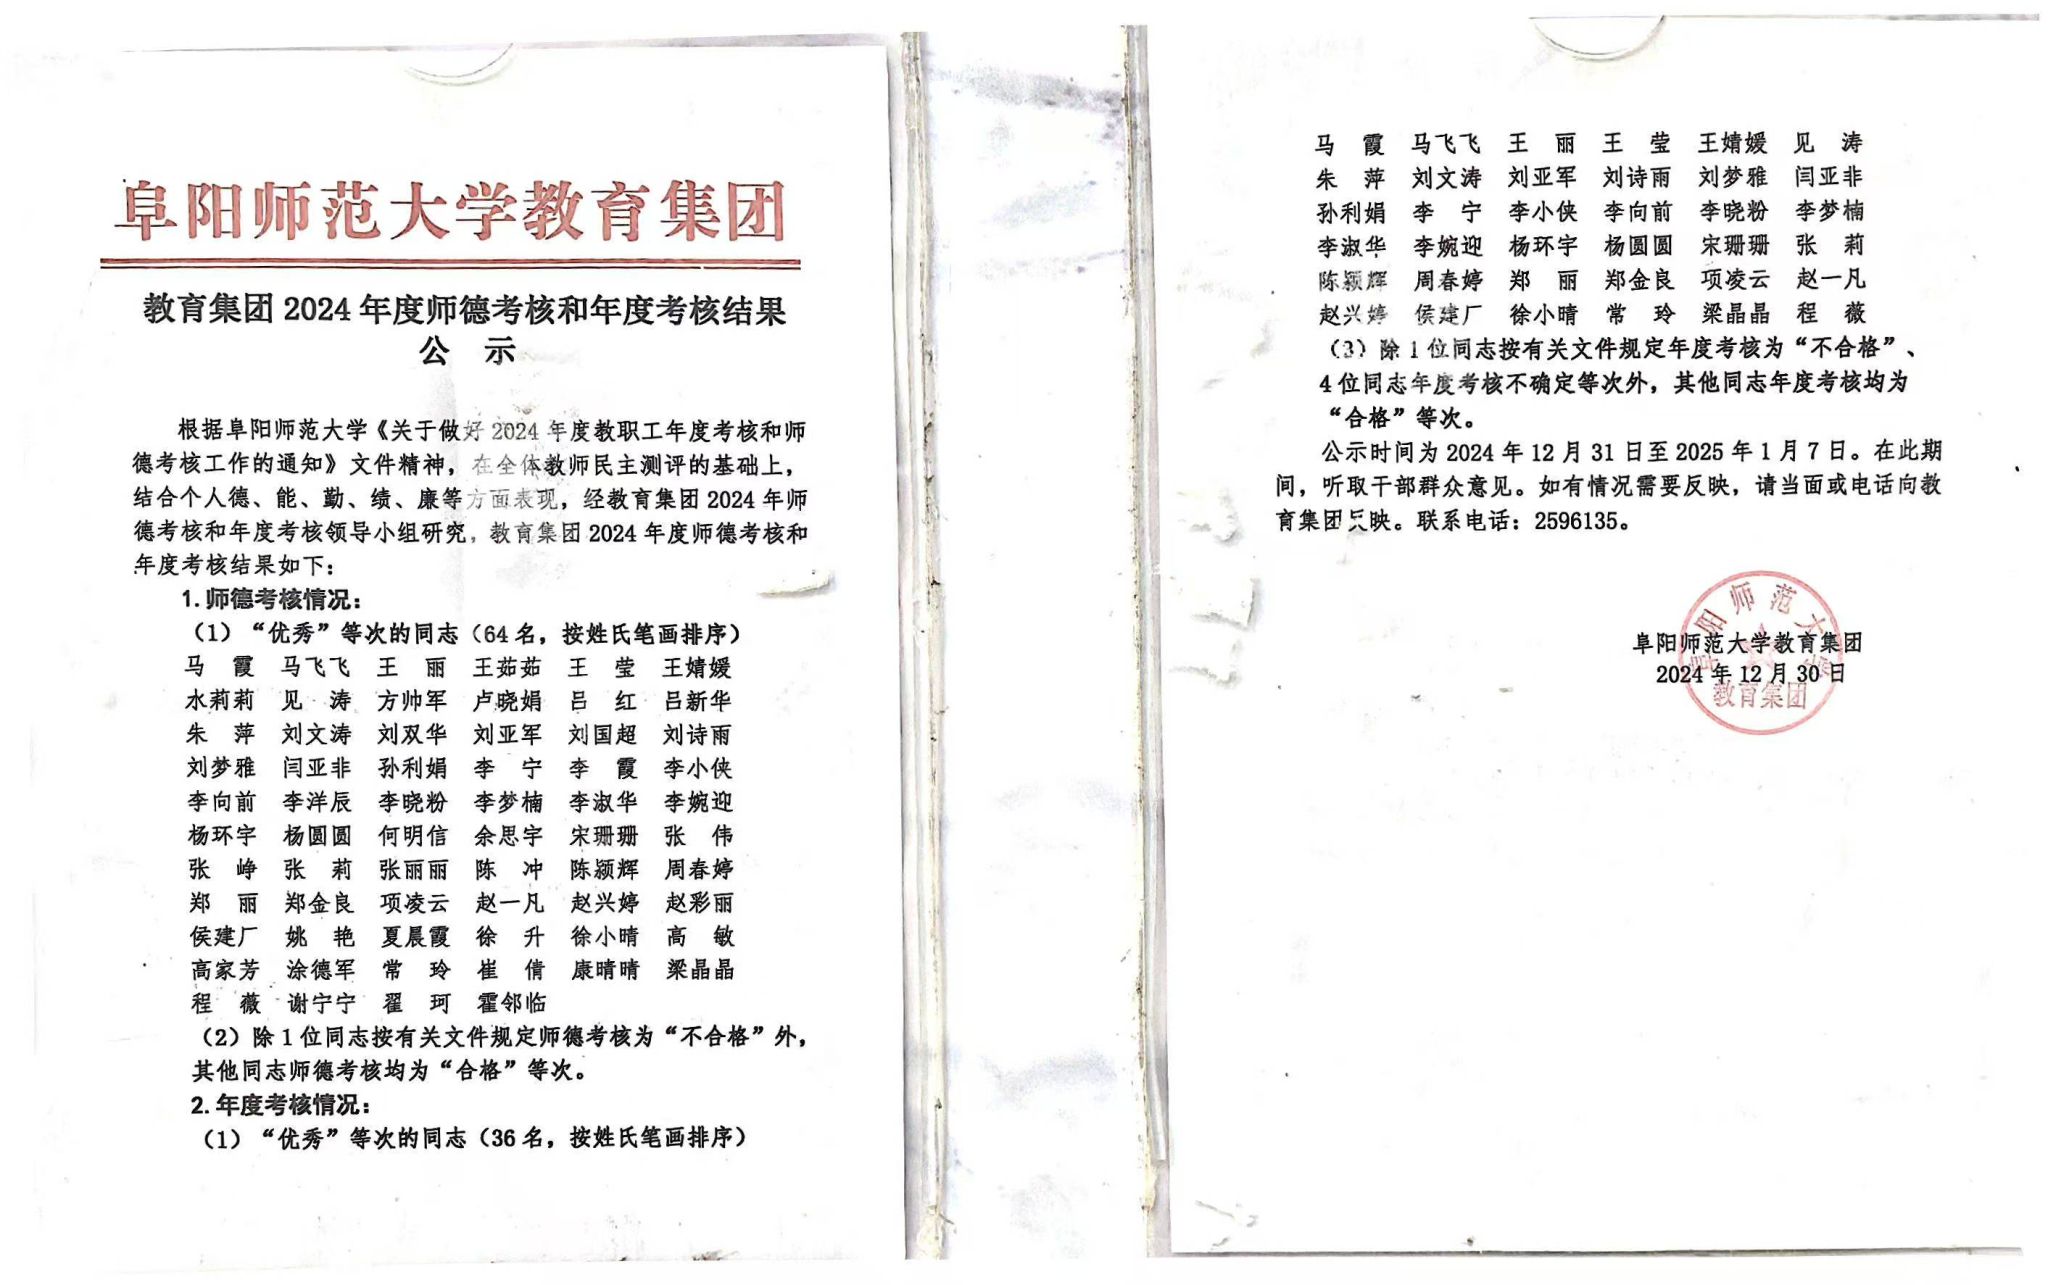 阜阳师范大学教育集团
教育集团 2024 年度师德考核和年度考核结果
公 示
根据阜阳师范大学《关于做好 2024 年度教职工年度考核和师
德考核工作的通知》文件精神，在全体教师民主测评的基础上，
结合个人德、能、勤、绩、廉等方面表现，经教育集团 2024 年师
德考核和年度考核领导小组研究，教育集团 2024 年度师德考核和
年度考核结果如下：
1.师德考核情况：
（1）“优秀”等次的同志（64 名，按姓氏笔画排序）
马 霞 马飞飞 王 丽 王茹茹 王 莹 王婧媛
水莉莉 见 涛 方帅军 卢晓娟 吕 红 吕新华
朱 萍 刘文涛 刘双华 刘亚军 刘国超 刘诗雨
刘梦雅 闫亚非 孙利娟 李 宁 李 霞 李小侠
李向前 李洋辰 李晓粉 李梦楠 李淑华 李婉迎
杨环宇 杨圆圆 何明信 余思宇 宋珊珊 张 伟
张 峥 张 莉 张丽丽 陈 冲 陈颍辉 周春婷
郑 丽 郑金良 项凌云 赵一凡 赵兴婷 赵彩丽
侯建厂 姚 艳 夏晨霞 徐 升 徐小晴 高 敏
高家芳 涂德军 常 玲 崔 倩 康晴晴 梁晶晶
程 薇 谢宁宁 翟 珂 霍邻临
（2）除 1 位同志按有关文件规定师德考核为“不合格”外，
其他同志师德考核均为“合格”等次。
2.年度考核情况：
（1）“优秀”等次的同志（36 名，按姓氏笔画排序）
马 霞 马飞飞 王 丽 王 莹 王婧媛 见 涛
朱 萍 刘文涛 刘亚军 刘诗雨 刘梦雅 闫亚非
孙利娟 李 宁 李小侠 李向前 李晓粉 李梦楠
李淑华 李婉迎 杨环宇 杨圆圆 宋珊珊 张 莉
陈颍辉 周春婷 郑 丽 郑金良 项凌云 赵一凡
赵兴婷 侯建厂 徐小晴 常 玲 梁晶晶 程 薇
（3）除 1 位同志按有关文件规定年度考核为“不合格”、
4 位同志年度考核不确定等次外，其他同志年度考核均为
“合格”等次。
公示时间为 2024 年 12 月 31 日至 2025 年 1 月 7 日。在此期
间，听取干部群众意见。如有情况需要反映，请当面或电话向教
育集团反映。联系电话：2596135。
阜阳师范大学教育集团
2024 年 12 月 30 日
阜阳师范大学
教育集团